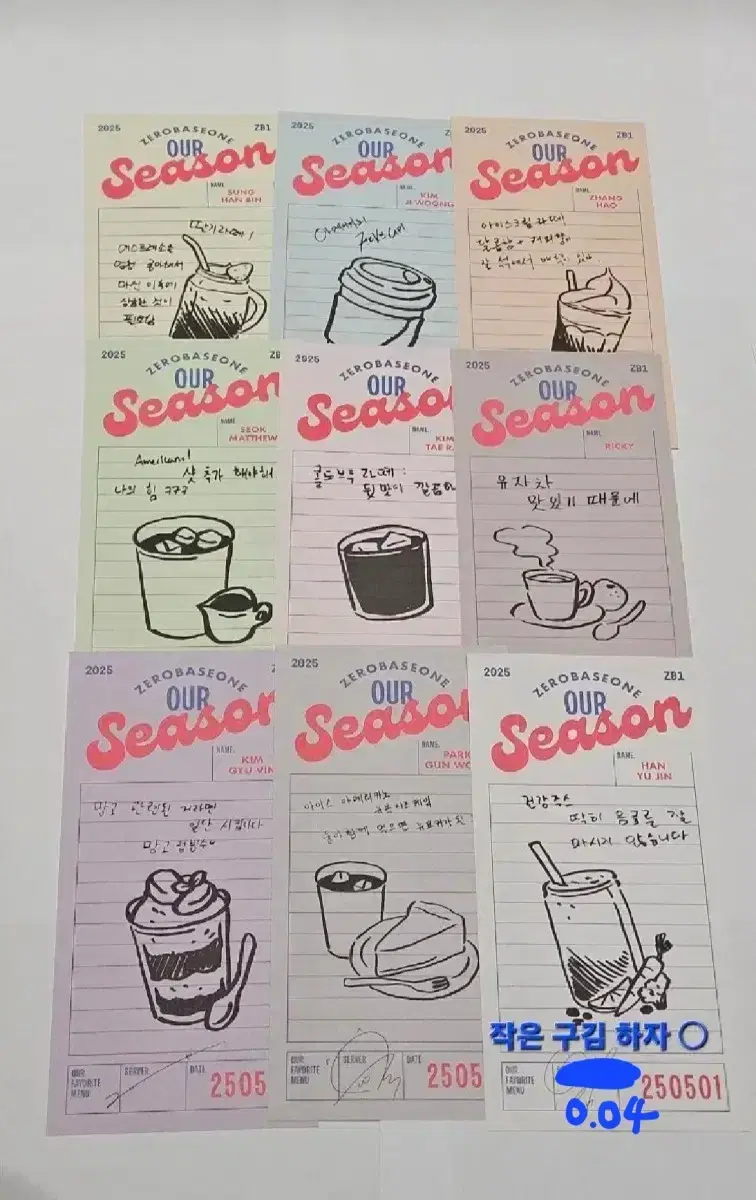 2025
ZB1
ZEROBASEONE
OUR
Season
NAME.
SUNG
HAN BIN
딸기라떼!
에스프레소를
마신 이후에
상큼한 것이
필요함
2025
ZEROBASEONE
OUR
Season
NAME.
KIM
JI WOONG
2025
ZB1
ZEROBASEONE
OUR
Season
NAME.
ZHANG
HAO
아이스크림 라떼
달콤함 + 커피향이
잘 섞여서 맛있다.
2025
ZEROBASEONE
OUR
Season
NAME.
SEOK
MATTHEW
샷 추가 해야해
나의 힘 ㅋㅋㅋ
2025
ZEROBASEONE
OUR
Seaso
NAME.
KIM
TAE R
콜드브루 라떼:
뒷맛이 깔끔하
2025
ZB1
ZEROBASEONE
OUR
Season
NAME.
RICKY
유자차
맛있기 때문에
2025
ZEROBASEONE
OUR
Season
NAME.
KIM
GYU VIN
망고 관련된 거라면
일단 시킵니다
2025
ZEROBASEONE
OUR
Season
NAME.
PARK
GUN WO
아이스 아메리카노
뉴욕치즈케익
둘이 함께 먹으면
2025
ZB1
ZEROBASEONE
OUR
Season
NAME.
HAN
YU JIN
건강주스
딱히 음료를 잘
마시지 않습니다
작은 구김 하자 ○
OUR
FAVORITE
MENU
SERVER
DATE
2505
OUR
FAVORITE
MENU
SERVER
DATE
2505
OUR
FAVORITE
MENU
250501
0.04